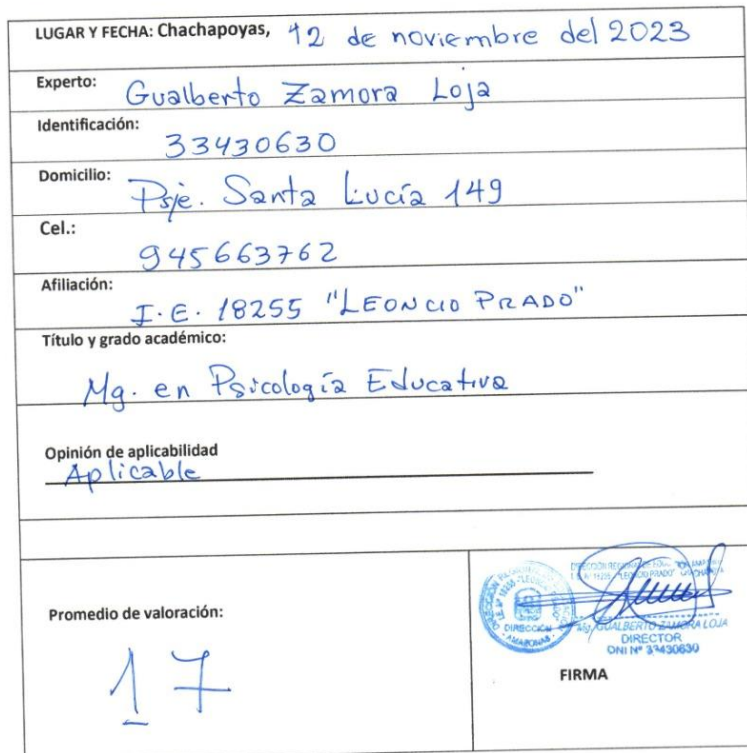 LUGAR Y FECHA: Chachapoyas, 12 de noviembre del 2023
Experto: Gualberto Zamora Loja
Identificación: 33430630
Domicilio: Psje. Santa Lucía 149
Cel.:
945663762
Afiliación:
I.E. 18255 "LEONCIO PRADO"
Título y grado académico:
Mg. en Psicología Educativa
Opinión de aplicabilidad
Aplicable
Promedio de valoración:
17
DIRECCIÓN
AMAZONAS
"LEONCIO PRADO"
Mg. GUALBERTO ZAMORA LOJA
DIRECTOR
DNI Nº 33430630
FIRMA